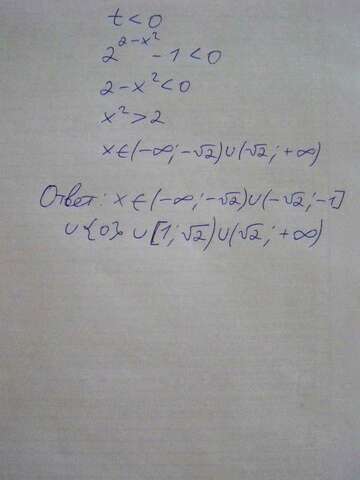 t<0
2^{2-x^2} - 1 < 0
2-x^2<0
x^2>2
x∈(-∞;-√2)∪(√2;+∞)
Ответ: x∈(-∞;-√2)∪(-√2;-1]
∪{0}∪[1;√2)∪(√2;+∞)